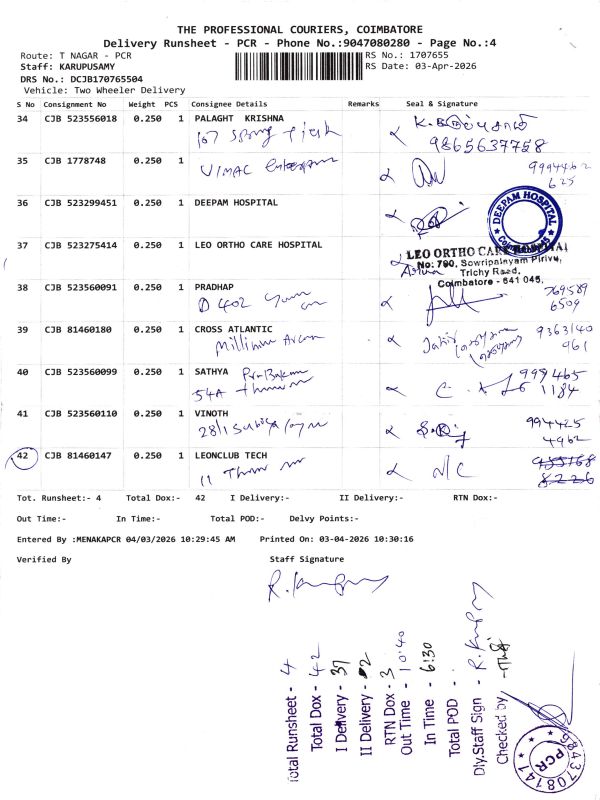 THE PROFESSIONAL COURIERS, COIMBATORE
Delivery Runsheet - PCR - Phone No.:9047080280 - Page No.:4
Route: T NAGAR - PCR
RS No.: 1707655
Staff: KARUPUSAMY
RS Date: 03-Apr-2026
DRS No.: DCJB170765504
Vehicle: Two Wheeler Delivery
S No Consignment No Weight PCS Consignee Details Remarks Seal & Signature
34 CJB 523556018 0.250 1 PALAGHT KRISHNA
9865637758
35 CJB 1778748 0.250 1
VIMAC
9994462
625
36 CJB 523299451 0.250 1 DEEPAM HOSPITAL
DEEPAM HOSPITAL
37 CJB 523275414 0.250 1 LEO ORTHO CARE HOSPITAL
LEO ORTHO CARE HOSPITAL
No: 790, Sowripalayam Pirivu,
Trichy Road,
Coimbatore - 641 045.
38 CJB 523560091 0.250 1 PRADHAP
D 402
769589
6509
39 CJB 81460180 0.250 1 CROSS ATLANTIC
9363140
961
40 CJB 523560099 0.250 1 SATHYA
54A
999465
1184
41 CJB 523560110 0.250 1 VINOTH
28/1
994425
4962
42 CJB 81460147 0.250 1 LEONCLUB TECH
11
N/C
Tot. Runsheet:- 4 Total Dox:- 42 I Delivery:- II Delivery:- RTN Dox:-
Out Time:- In Time:- Total POD:- Delvy Points:-
Entered By :MENAKAPCR 04/03/2026 10:29:45 AM Printed On: 03-04-2026 10:30:16
Verified By Staff Signature
Total Runsheet - 4
Total Dox - 42
I Delivery - 37
II Delivery - 2
RTN Dox - 3
Out Time - 10:40
In Time - 6:30
Total POD -
Dly.Staff Sign -
Checked by -
PCR
9843708141